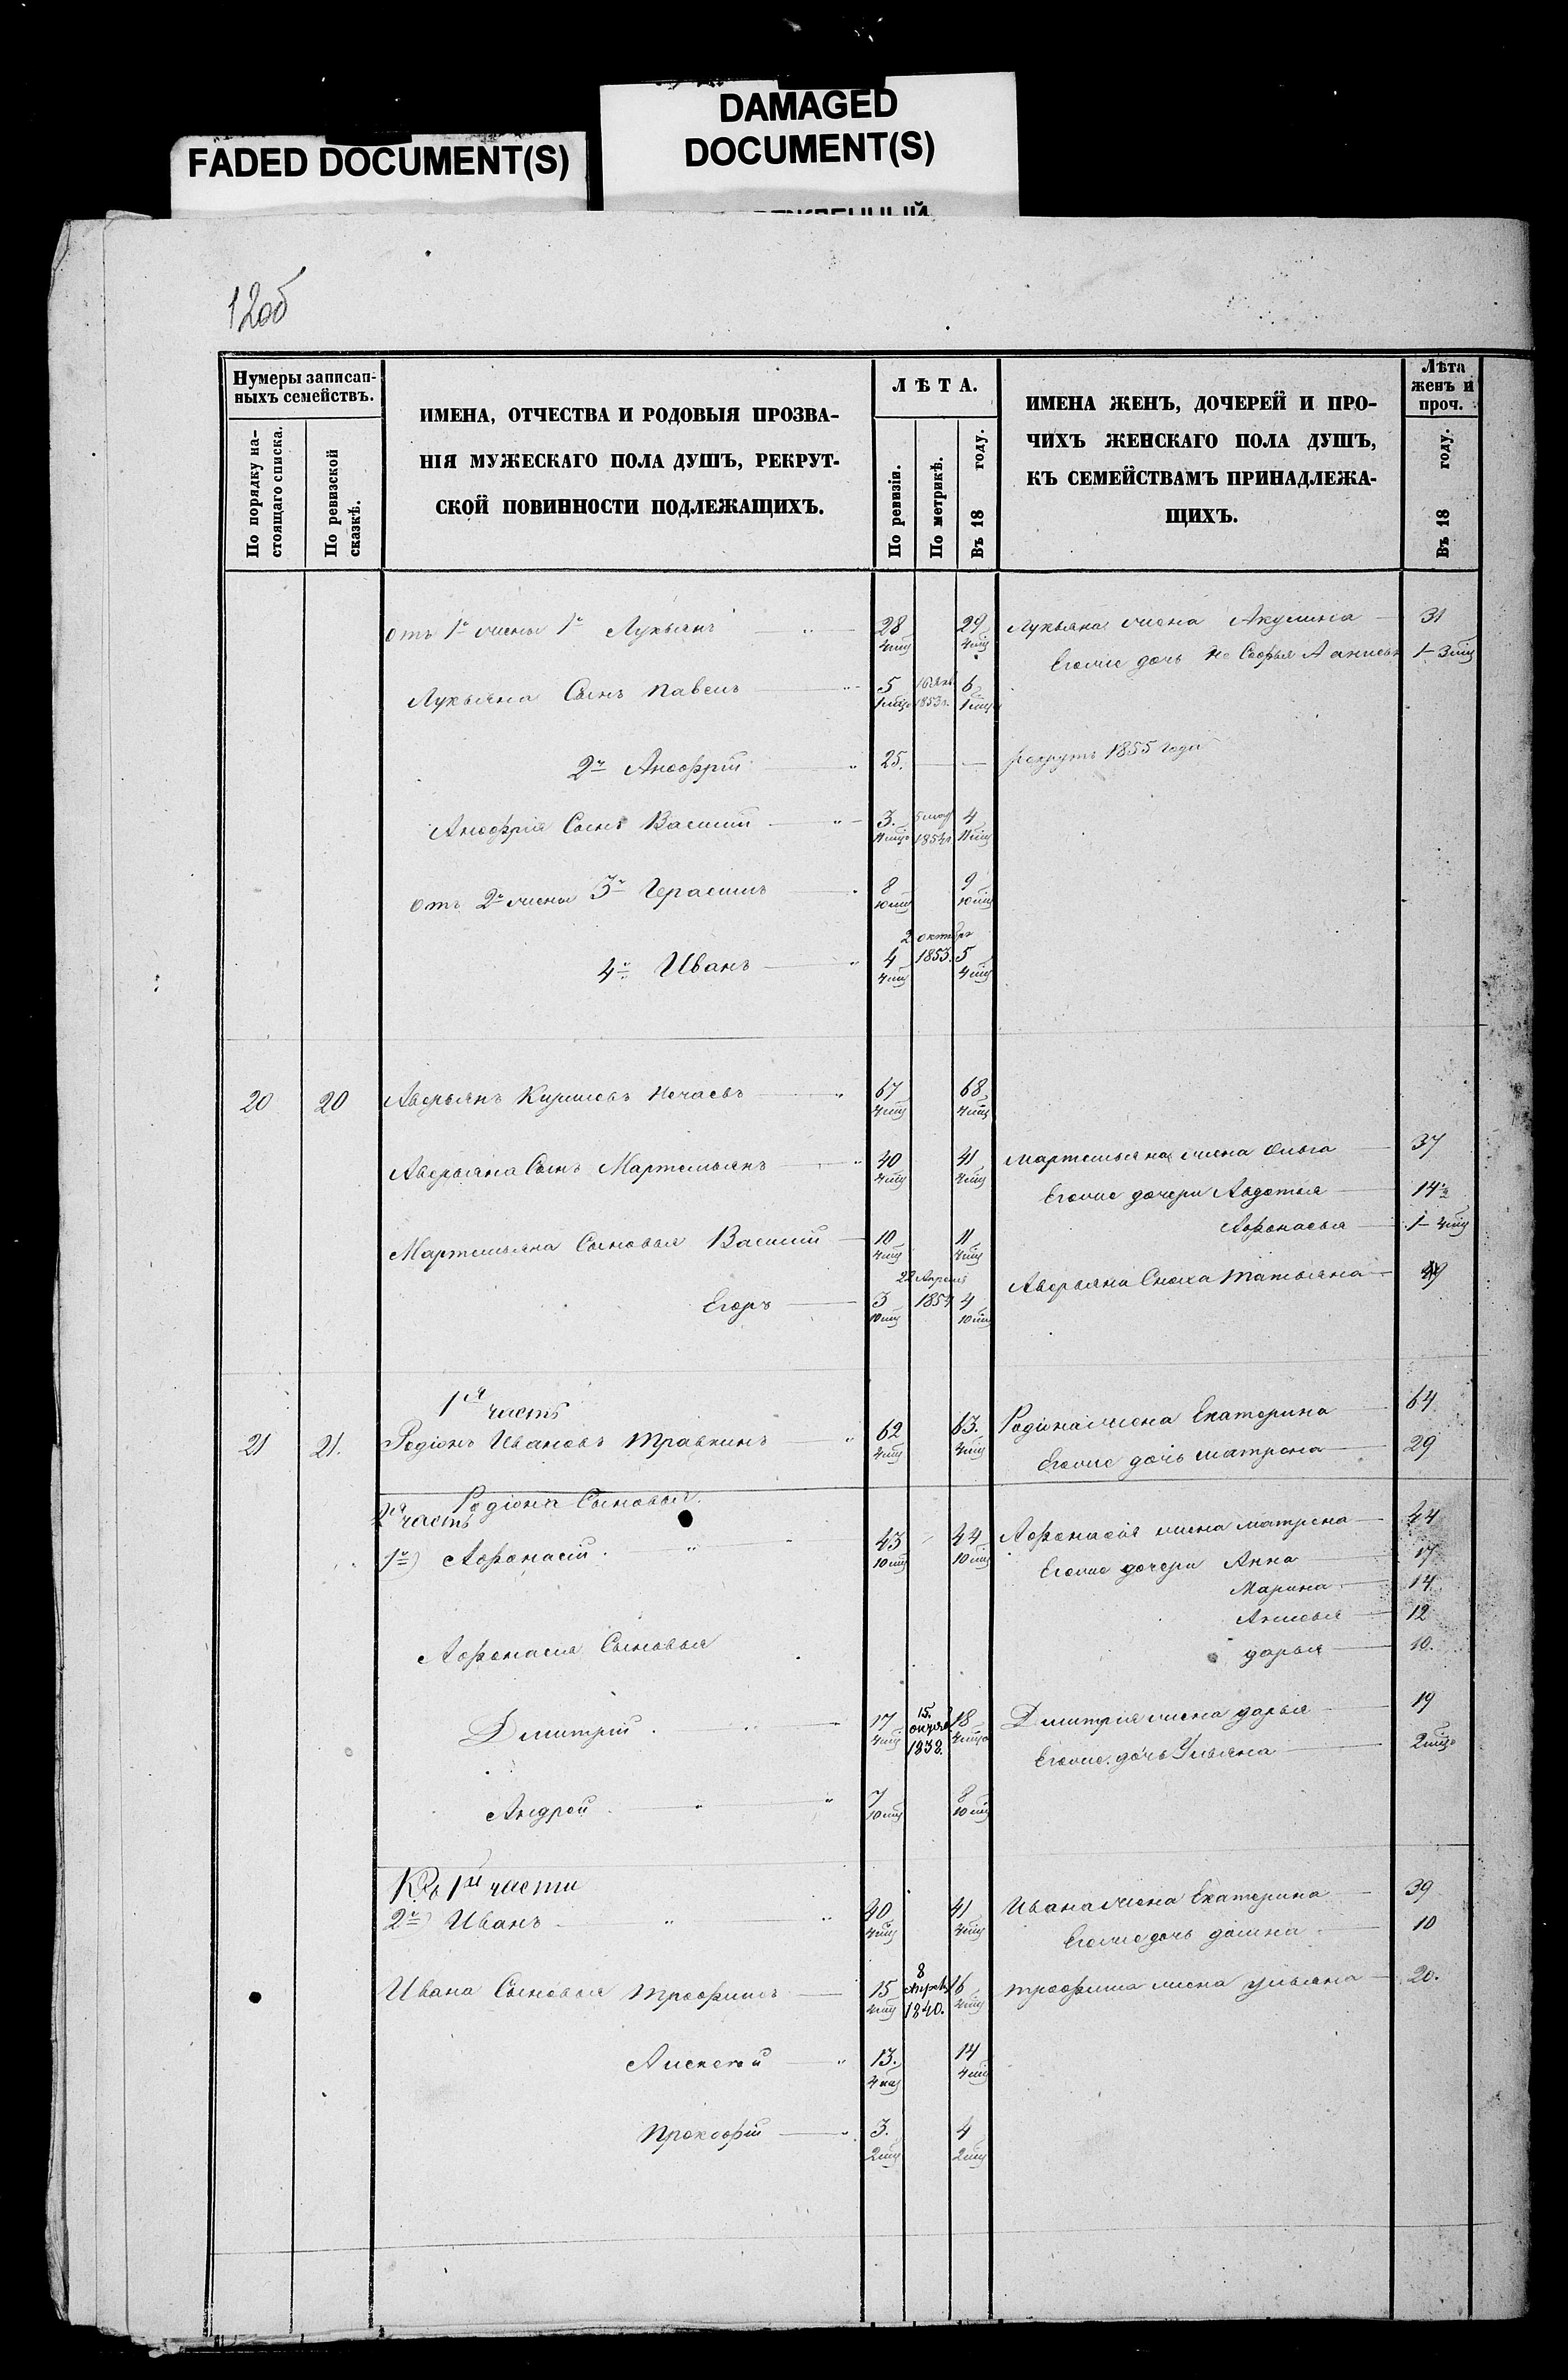 FADED DOCUMENT(S)
DAMAGED
DOCUMENT(S)
12об
Нумеры записан-
ныхъ семействъ.
По порядку на-
стоящаго списка.
По ревизской
сказкѣ.
ИМЕНА, ОТЧЕСТВА И РОДОВЫЯ ПРОЗВА-
НІЯ МУЖЕСКАГО ПОЛА ДУШЪ, РЕКРУТ-
СКОЙ ПОВИННОСТИ ПОДЛЕЖАЩИХЪ.
ЛѢТА.
По ревизіи.
По метрикѣ.
Въ 18 году.
ИМЕНА ЖЕНЪ, ДОЧЕРЕЙ И ПРО-
ЧИХЪ ЖЕНСКАГО ПОЛА ДУШЪ,
КЪ СЕМЕЙСТВАМЪ ПРИНАДЛЕЖА-
ЩИХЪ.
Лѣта
женъ и
проч.
Въ 18 году.
отъ 1й жены 1й Лукьянъ 28 4мц 29 4мц Лукьяна жена Акулина 31
Егоже дочь не Софья а анисья 1 3мц
Лукьяна Сынъ павелъ 5 1мц 1853г. 6 1мц
2й Анофрій 25. рекрутъ 1855 года
Анофрія Сынъ Василій 3. 11мц 1854г 4 11мц
отъ 2й жены 3й Герасимъ 8 10мц 9 10мц
2 октября
4й Иванъ 4 4мц 1853. 5 4мц
20 20 Аверьянъ Кириловъ Нечаевъ 67 4мц 68 4мц
Аверьяна Сынъ Мартемьянъ 40 4мц 41 4мц Мартемьяна жена Ольга 37
Егоже дочери Авдотья 14
Афонасья 1 4мц
Мартемьяна Сыновья Василій 10 4мц 11 4мц
22 Апреля
Аверьяна Сноха Татьяна
Егоръ 3 10мц 1854 4 10мц
1я часть
21 21. Родіонъ Ивановъ Травкинъ 62 4мц 63. 4мц Родіона жена Екатерина 64
Егоже дочь матрона 29
Родіона Сыновья.
2я часть
1й) Афонасій 43 10мц 44 10мц Афонасія жена матрона 44
Егоже дочери Анна 17
Марина 14
Анисья 12
Афонасія Сыновья
дарья 10.
Дмитрій 17 4мц 15. октяб 1838. 18 4мц Дмитрія жена дарья 19
Егоже дочь Ульяна 2мц
Андрей 7 10мц 8 10мц
Къ 1й части
2й) Иванъ 40 4мц 41 4мц Ивана жена Екатерина 39
Егоже дочь домна 10
Ивана Сыновья трофимъ 15 4мц 8 апрель 1840. 16 4мц трофима жена ульяна 20.
Алексей 13. 4мц 14 4мц
прокофій 3. 2мц 4 2мц